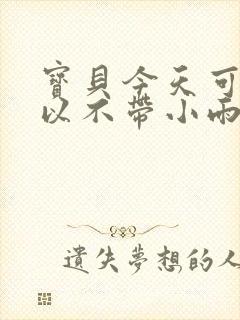 寶貝今天可
以不帶小雨
遺失夢想的人